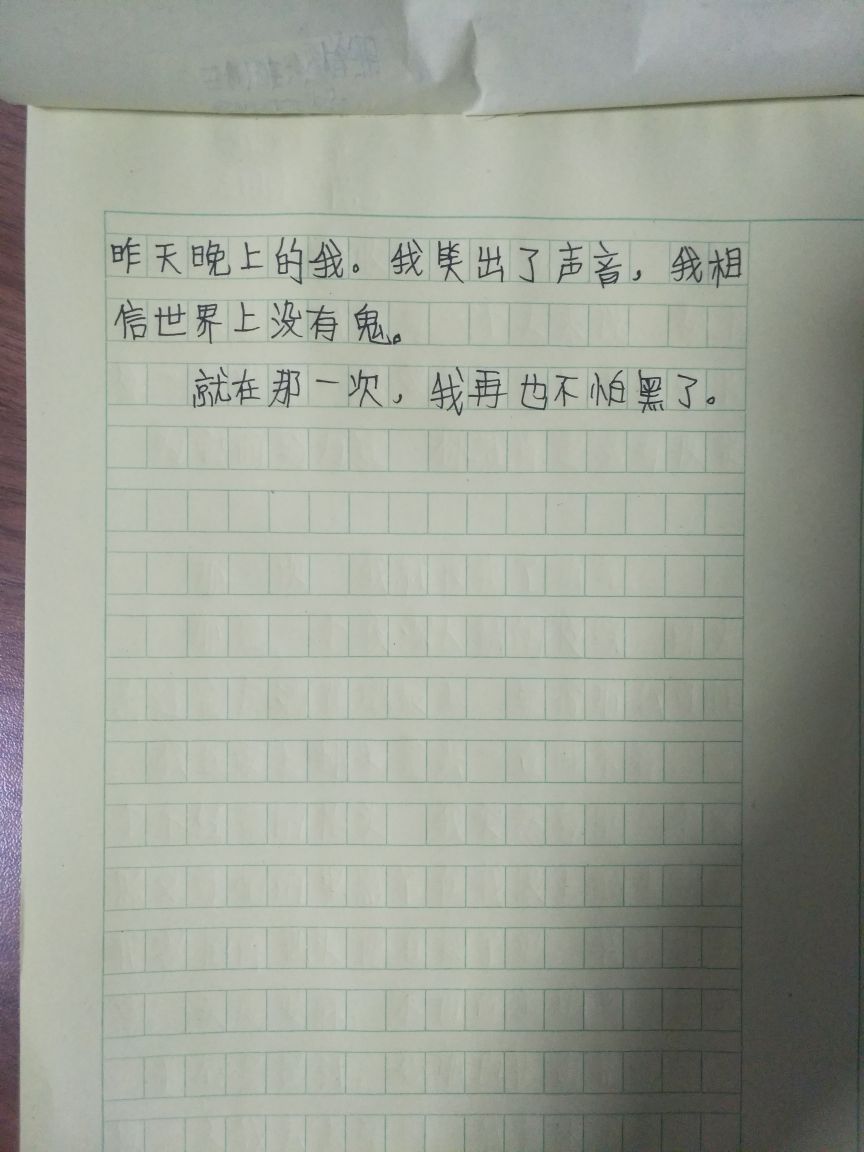 昨天晚上的我。我笑出了声音，我相
信世界上没有鬼。
就在那一次，我再也不怕黑了。